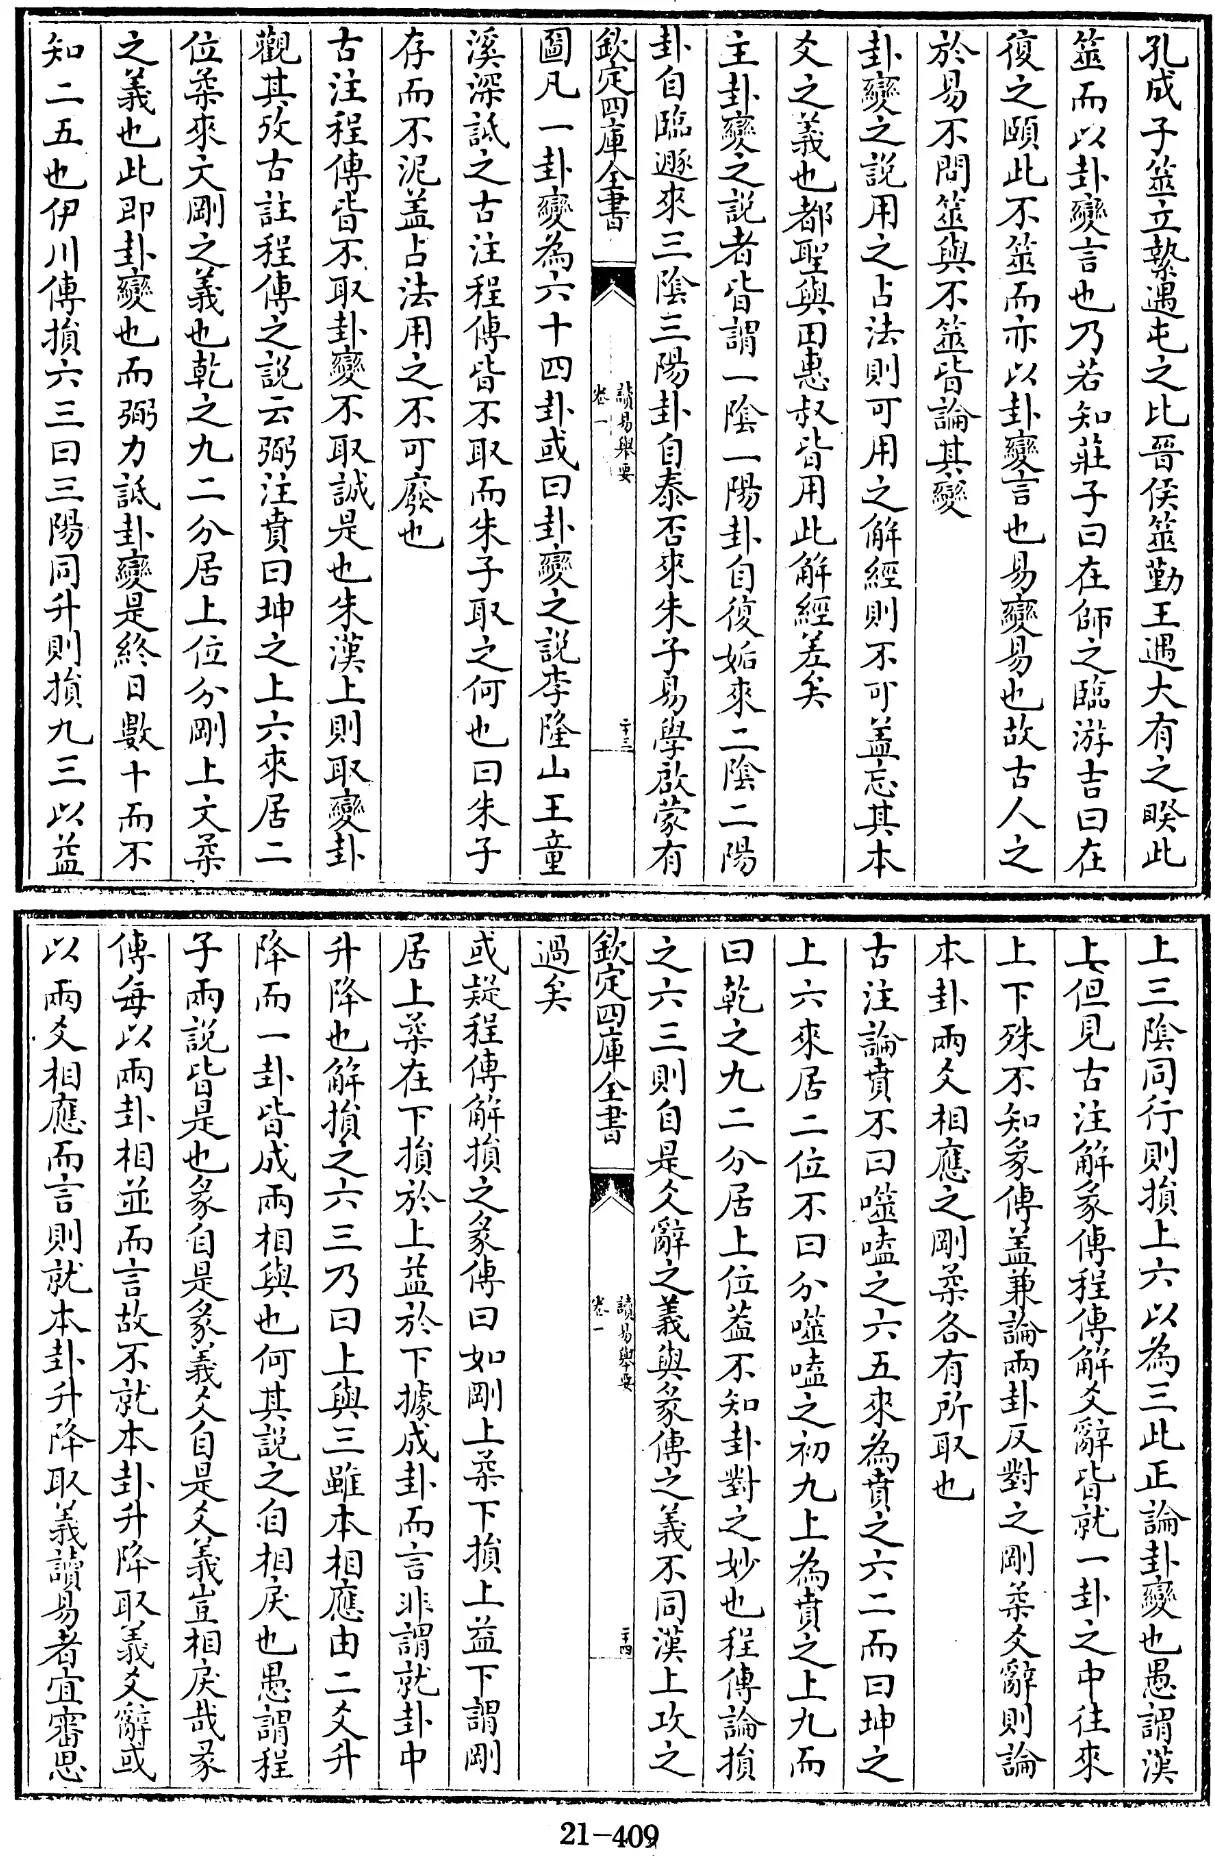 孔成子筮立縶遇屯之比晉侯筮勤王遇大有之睽此
筮而以卦變言也乃若知莊子曰在師之臨游吉曰在
復之頤此不筮而亦以卦變言也易變易也故古人之
於易不問筮與不筮皆論其變
卦變之說用之占法則可用之解經則不可蓋忘其本
爻之義也都聖與田惠叔皆用此解經差矣
主卦變之說者皆謂一陰一陽卦自復姤來二陰二陽
卦自臨遯來三陰三陽卦自泰否來朱子易學啟蒙有
欽定四庫全書
讀易舉要
卷一
二十三
圖凡一卦變為六十四卦或曰卦變之說李隆山王童
溪深詆之古注程傳皆不取而朱子取之何也曰朱子
存而不泥蓋占法用之不可廢也
古注程傳皆不取卦變不取誠是也朱漢上則取變卦
觀其攷古註程傳之說云弼注賁曰坤之上六來居二
位柔來文剛之義也乾之九二分居上位分剛上文柔
之義也此即卦變也而弼力詆卦變是終日數十而不
知二五也伊川傳損六三曰三陽同升則損九三以益
上三陰同行則損上六以為三此正論卦變也愚謂漢
上但見古注解彖傳程傳解爻辭皆就一卦之中往來
上下殊不知彖傳蓋兼論兩卦反對之剛柔爻辭則論
本卦兩爻相應之剛柔各有所取也
古注論賁不曰噬嗑之六五來為賁之六二而曰坤之
上六來居二位不曰分噬嗑之初九上為賁之上九而
曰乾之九二分居上位蓋不知卦對之妙也程傳論損
之六三則自是爻辭之義與彖傳之義不同漢上攻之
欽定四庫全書
讀易舉要
卷一
二十四
過矣
或疑程傳解損之彖傳曰如剛上柔下損上益下謂剛
居上柔在下損於上益於下據成卦而言非謂就卦中
升降也解損之六三乃曰上與三雖本相應由二爻升
降而一卦皆成兩相與也何其說之自相戾也愚謂程
子兩說皆是也彖自是彖義爻自是爻義豈相戾哉彖
傳每以兩卦相並而言故不就本卦升降取義爻辭或
以兩爻相應而言則就本卦升降取義讀易者宜審思
21-409